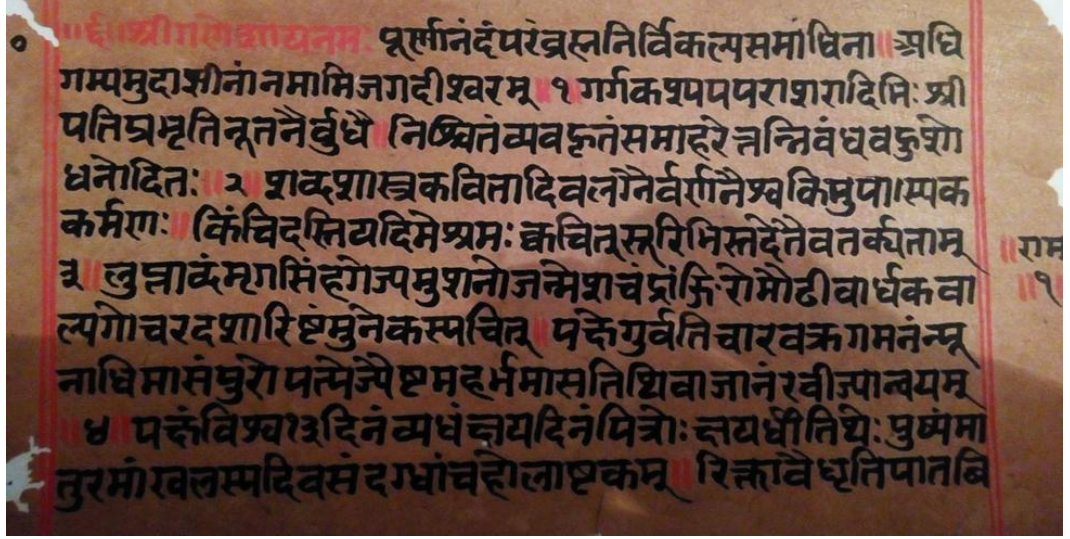 ॥६॥श्रीगणेशायनमः पूर्णानंदंपरंब्रह्मनिर्विकल्पसमाधिना॥अधि
गम्यमुदासीनांनमामिजगदीश्वरम् १ गर्गकश्यपपराशरादिभिः श्री
पतिप्रभृतिनूतनैर्बुधै॥निश्चितंव्यवहृतंसमाहरेत्तन्निबंधबहुशो
धनोदितः॥२ शब्दशास्त्रकवितादिवल्गनैर्वर्णनैश्चकिमुपास्यक
कर्मणः॥किंचिदस्तियदिमेश्रमः क्वचित्सूरिभिस्तदेतैवतर्क्यताम्
३॥लुप्ताब्दंमृगसिंहगेज्यमुशनोजन्मेशचंद्रांगिरोमौढीवार्धकबा
ल्यगोचरदशारिष्टंमुनेकस्यचित्॥पक्षेगुर्वतिचारवक्रगमनंन्यू
नाधिमासंपुरोपत्येज्यैष्टमहर्भमासतिथिवाजानंरवीज्यान्वयम्
॥४॥पक्षंविश्व१३दिनंव्यधंक्षयदिनंपित्रोःक्षयर्धीतिथेःपुष्पंमा
तुरमांखलस्यदिवसंदग्धांचहोलाष्टकम्॥रिक्तावैधृतिपातवि
॥राम
॥१